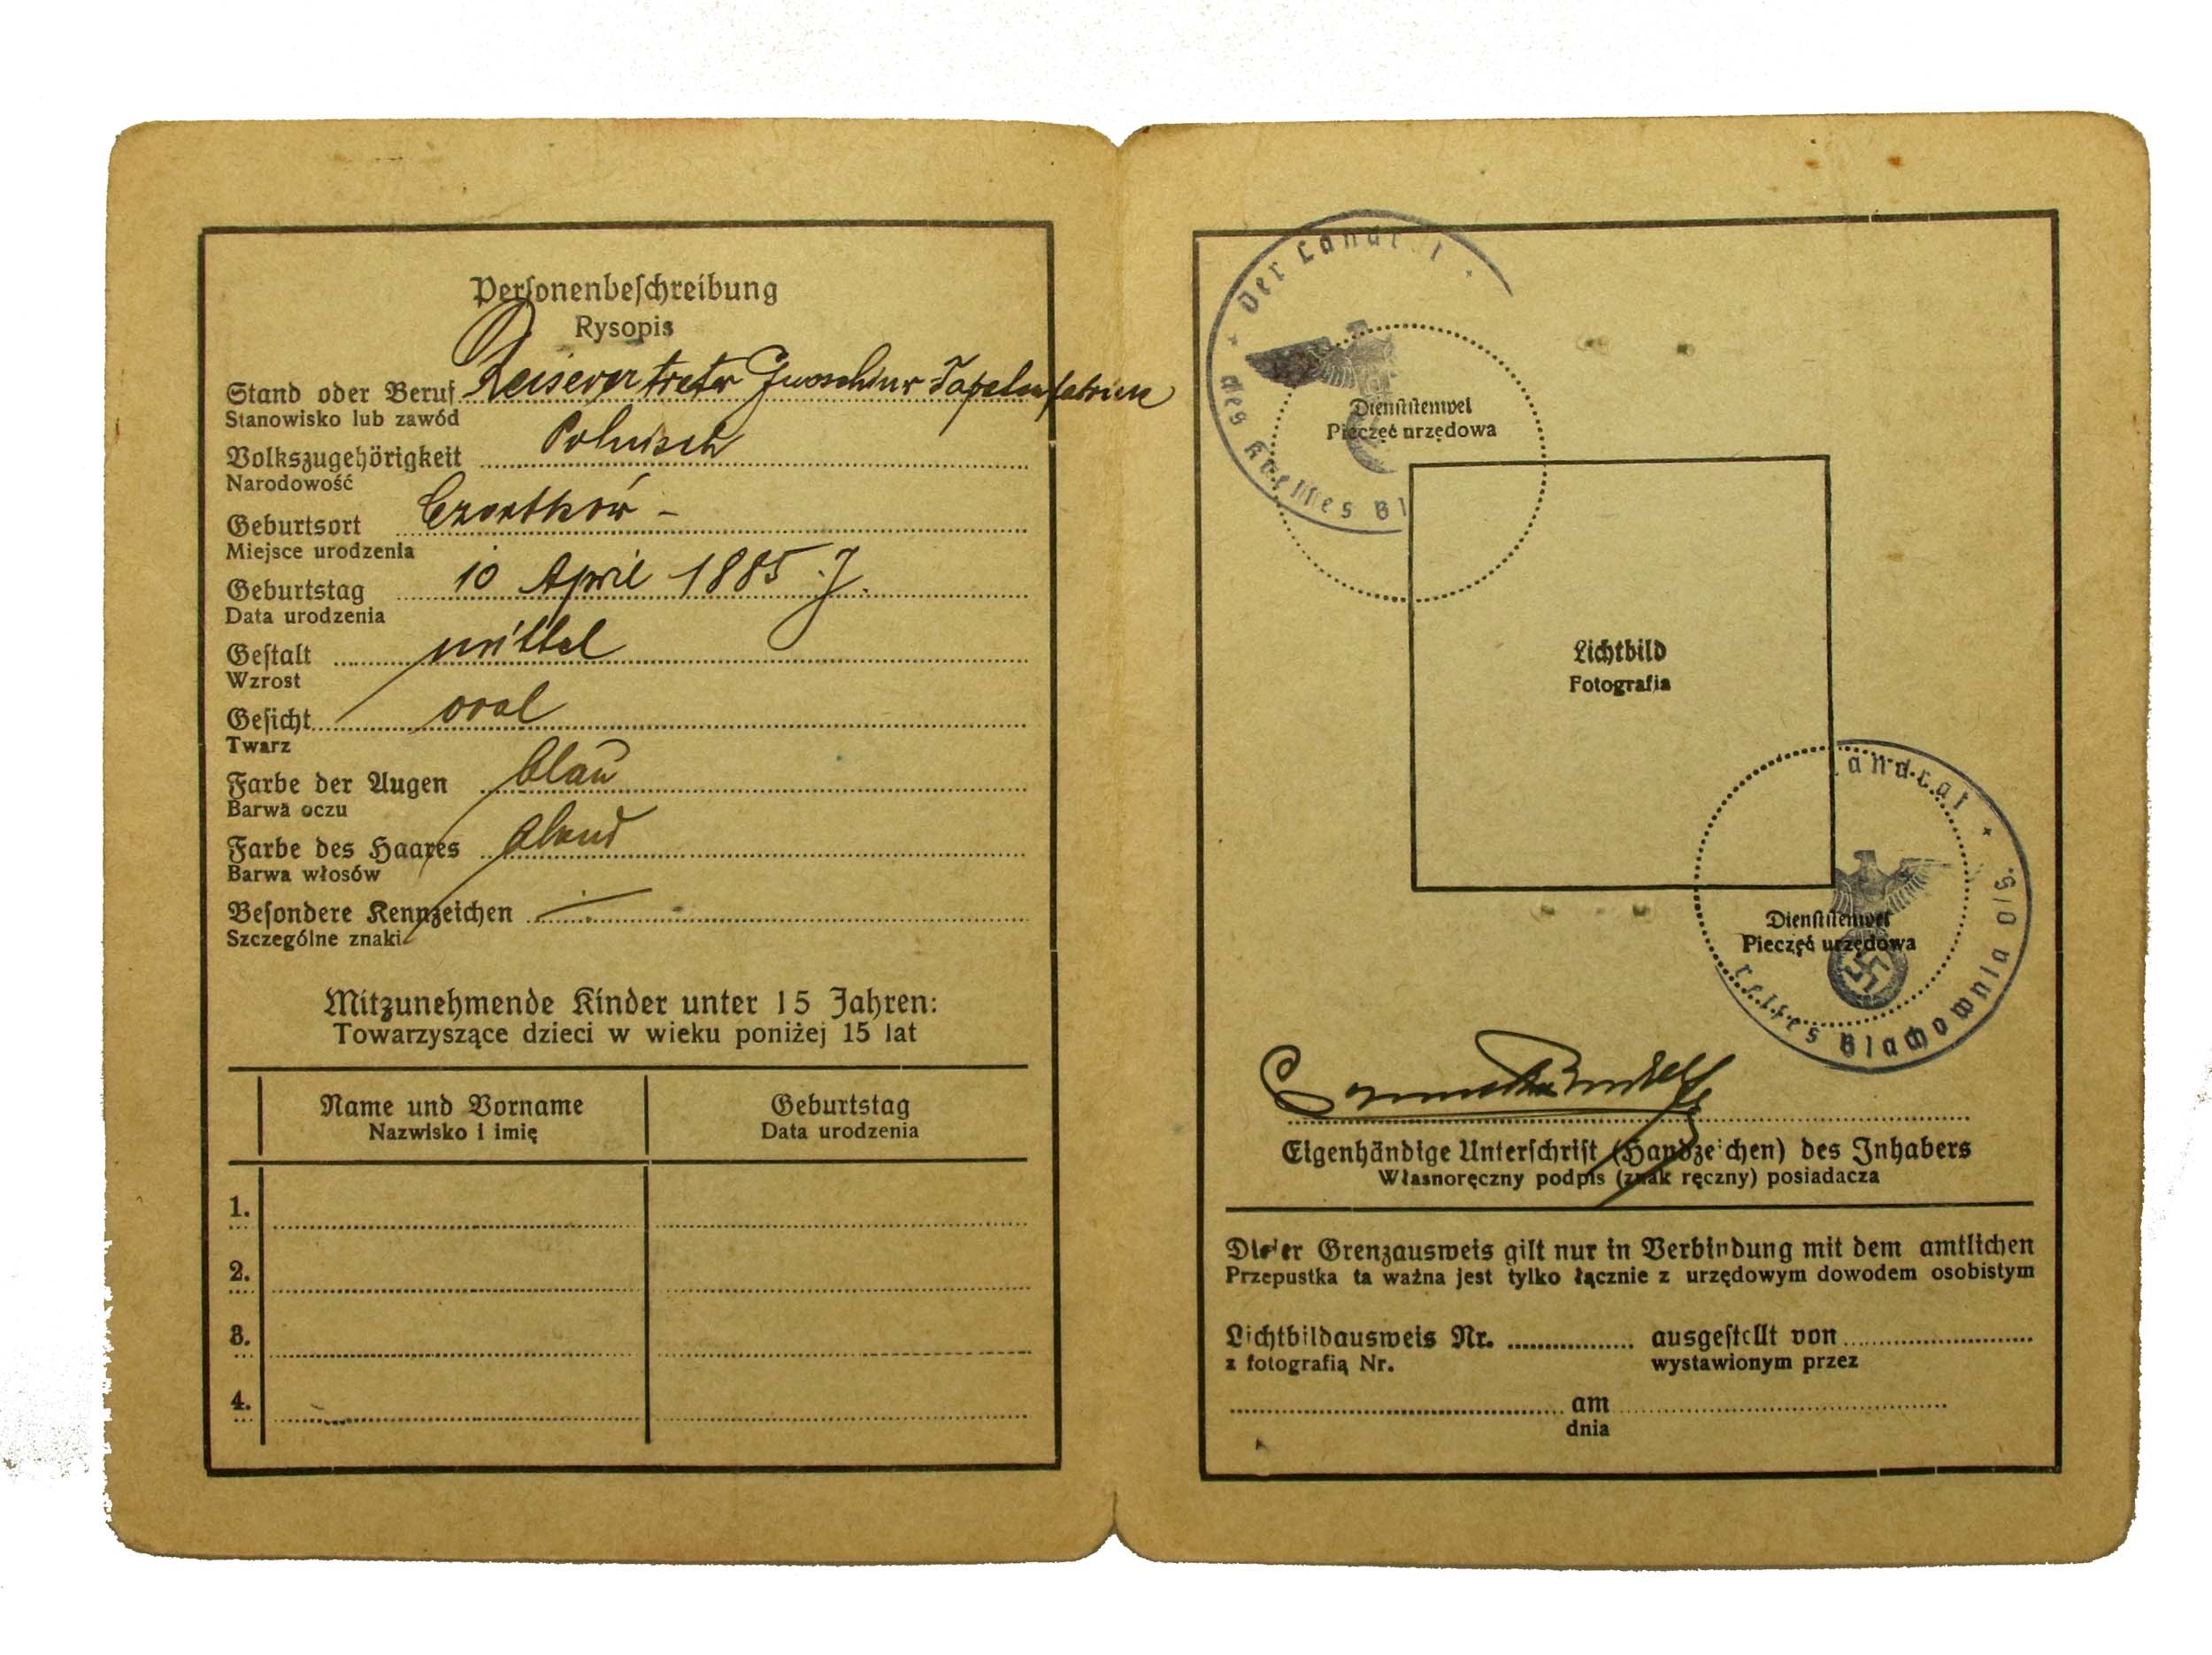 Personenbeschreibung
Rysopis
Stand oder Beruf Reisevertreter
Stanowisko lub zawód
Volkszugehörigkeit Polnisch
Narodowość
Geburtsort Czortków -
Miejsce urodzenia
Geburtstag 10 April 1885 J.
Data urodzenia
Gestalt mittel
Wzrost
Gesicht oval
Twarz
Farbe der Augen blau
Barwa oczu
Farbe des Haares blond
Barwa włosów
Besondere Kennzeichen
Szczególne znaki
Mitzunehmende Kinder unter 15 Jahren:
Towarzyszące dzieci w wieku poniżej 15 lat
Name und Vorname Geburtstag
Nazwisko i imię Data urodzenia
1.
2.
3.
4.
Der Landrat
des Kreises Bl
Dienststempel
Pieczęć urzędowa
Lichtbild
Fotografia
andrat
reises Blachownia O/S.
Dienststempel
Pieczęć urzędowa
Eigenhändige Unterschrift (Handzeichen) des Inhabers
Własnoręczny podpis (znak ręczny) posiadacza
Dieser Grenzausweis gilt nur in Verbindung mit dem amtlichen
Przepustka ta ważna jest tylko łącznie z urzędowym dowodem osobistym
Lichtbildausweis Nr. ausgestellt von
z fotografią Nr. wystawionym przez
am
dnia